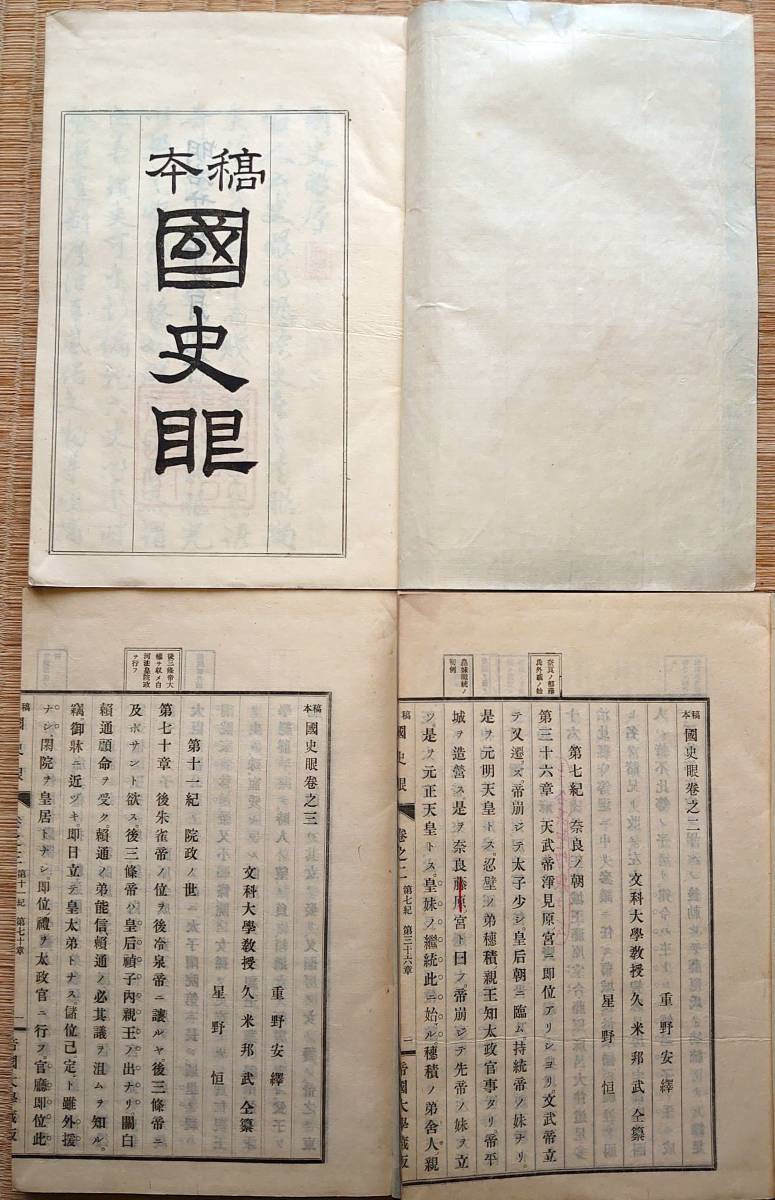 稿本
國史眼
稿本 國史眼卷之二
文科大學教授
重野安繹
久米邦武 仝纂
星野恒
第七紀 奈良ノ朝
第三十六章 天武帝淨見原宮ニ即位アリシヨリ文武帝立
テ又遷ズ。帝崩ジテ太子少シ皇后朝ニ臨ム持統帝ノ妹ナリ。
是ヲ元明天皇トス。忍壁ノ弟穗積親王知太政官事タリ。帝平
城ヲ造營ス是ヲ奈良藤原宮ト曰フ。帝崩ジテ先帝ノ妹ヲ立
ツ是ヲ元正天皇トス。皇妹ノ繼統此ニ始ル。穗積ノ弟舍人親
稿本 國史眼 卷之二 第七紀 第三十六章 一 帝國大學藏版
皇妹繼統ノ
初例
後三條帝大
權ヲ收メ白
河法皇院政
ヲ行フ
稿本 國史眼卷之三
文科大學教授
重野安繹
久米邦武 仝纂
星野恒
第十一紀 院政ノ世
第七十章 後朱雀帝ノ位ヲ後冷泉帝ニ讓ルヤ後三條帝ニ
及ボサント欲ス後三條帝ハ皇后禎子內親王ノ出ナリ。關白
賴通顧命ヲ受ク賴通ノ弟能信賴通ノ必其議ヲ沮ムヲ知ル。
竊ニ御牀ニ近ヅキ即日立テ皇太弟トナス儲位已定ト雖外援
ナシ。閑院ヲ皇居トナシ。即位禮ヲ太政官ニ行フ。官廳即位此
稿本 國史眼 卷之三 第十一紀 第七十章 一 帝國大學藏版